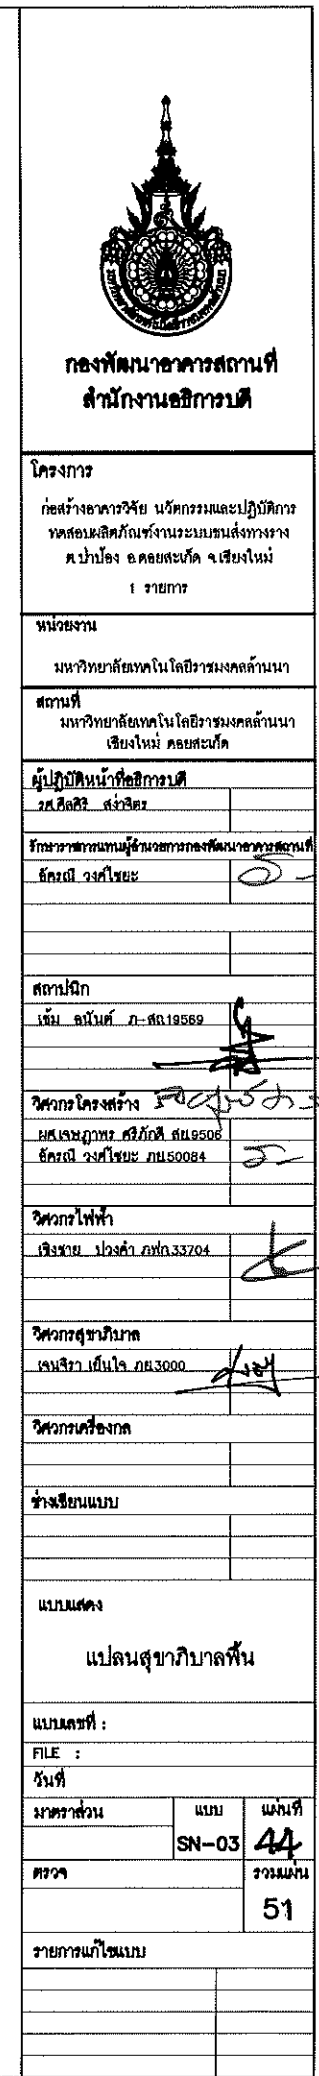 กองพัฒนาอาคารสถานที่
สำนักงานอธิการบดี
โครงการ
ก่อสร้างอาคารวิจัย นวัตกรรมและปฏิบัติการ
ทดสอบผลิตภัณฑ์งานระบบขนส่งทางราง
ต.ป่าป้อง อ.ดอยสะเก็ด จ.เชียงใหม่
1 รายการ
หน่วยงาน
มหาวิทยาลัยเทคโนโลยีราชมงคลล้านนา
สถานที่
มหาวิทยาลัยเทคโนโลยีราชมงคลล้านนา
เชียงใหม่ ดอยสะเก็ด
ผู้ปฏิบัติหน้าที่อธิการบดี
รศ.ศีลศิริ สง่าจิตร
รักษาราชการแทนผู้อำนวยการกองพัฒนาอาคารสถานที่
อัครณี วงศ์ไชยะ
สถาปนิก
เข้ม อนันต์ ภ-สถ.19569
วิศวกรโครงสร้าง
ผศ.เจษฎาพร ศรีภักดี สย.9506
อัครณี วงศ์ไชยะ ภย.50084
วิศวกรไฟฟ้า
เชิงชาย ปวงคำ ภฟก.33704
วิศวกรสุขาภิบาล
เจนจิรา เย็นใจ ภย.3000
วิศวกรเครื่องกล
ช่างเขียนแบบ
แบบแสดง
แปลนสุขาภิบาลพื้น
แบบเลขที่ :
FILE :
วันที่
มาตราส่วน แบบ แผ่นที่
SN-03 44
ตรวจ รวมแผ่น
51
รายการแก้ไขแบบ